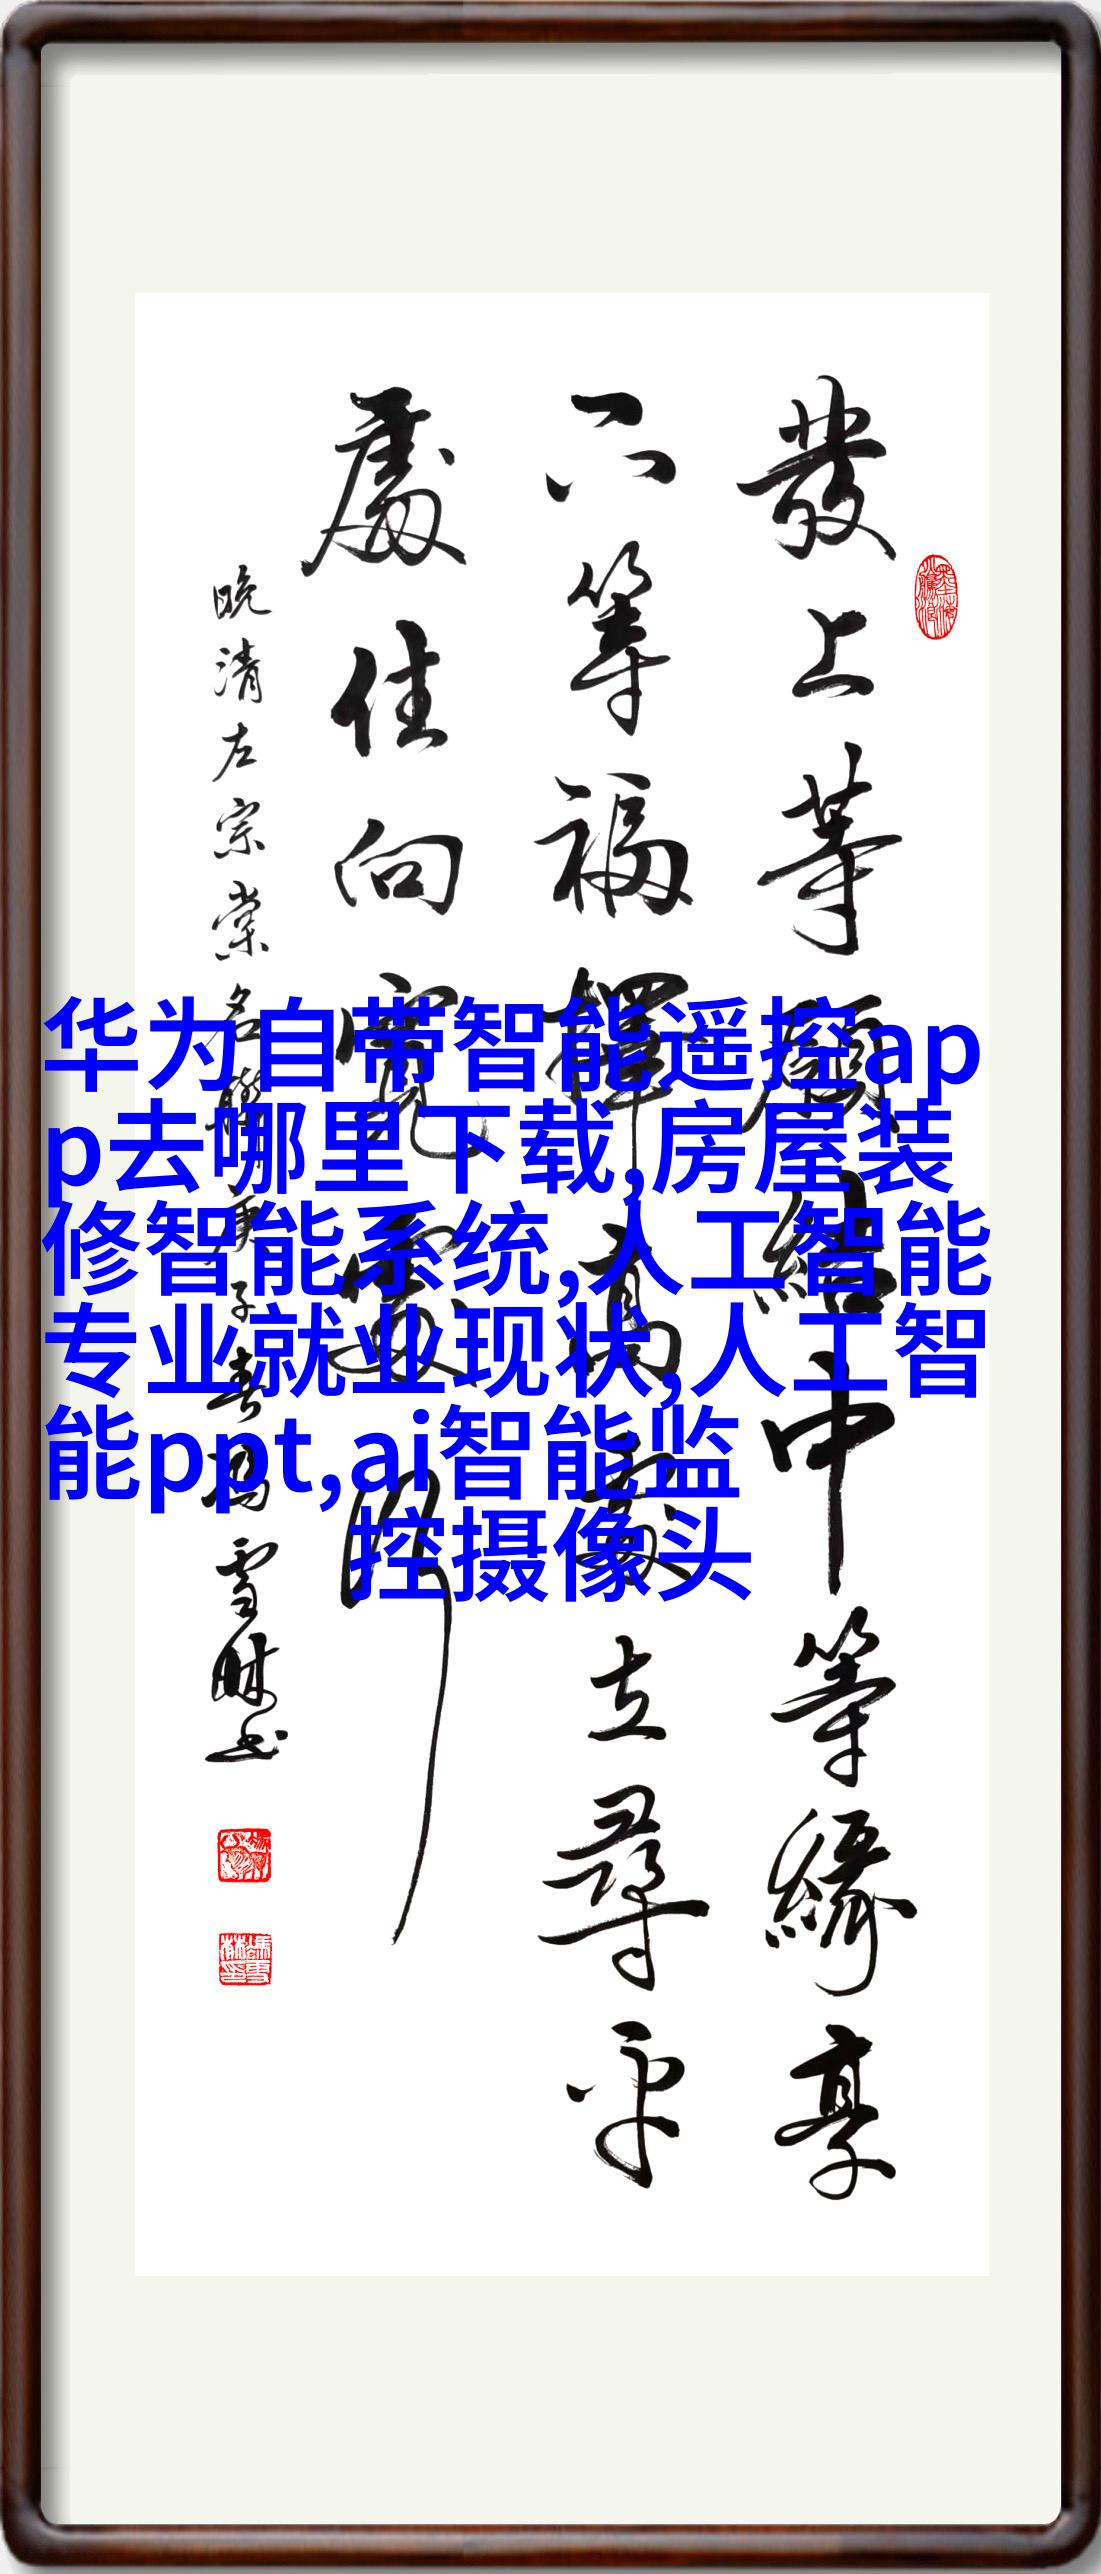 發上等願結中等緣享
下等福擇高處立尋平
處住向寬處行
晚清左宗棠名聯庚子春馮雪林书
华为自带智能遥控ap
p去哪里下载,房屋装
修智能系统,人工智能
专业就业现状,人工智
能ppt,ai智能监
控摄像头